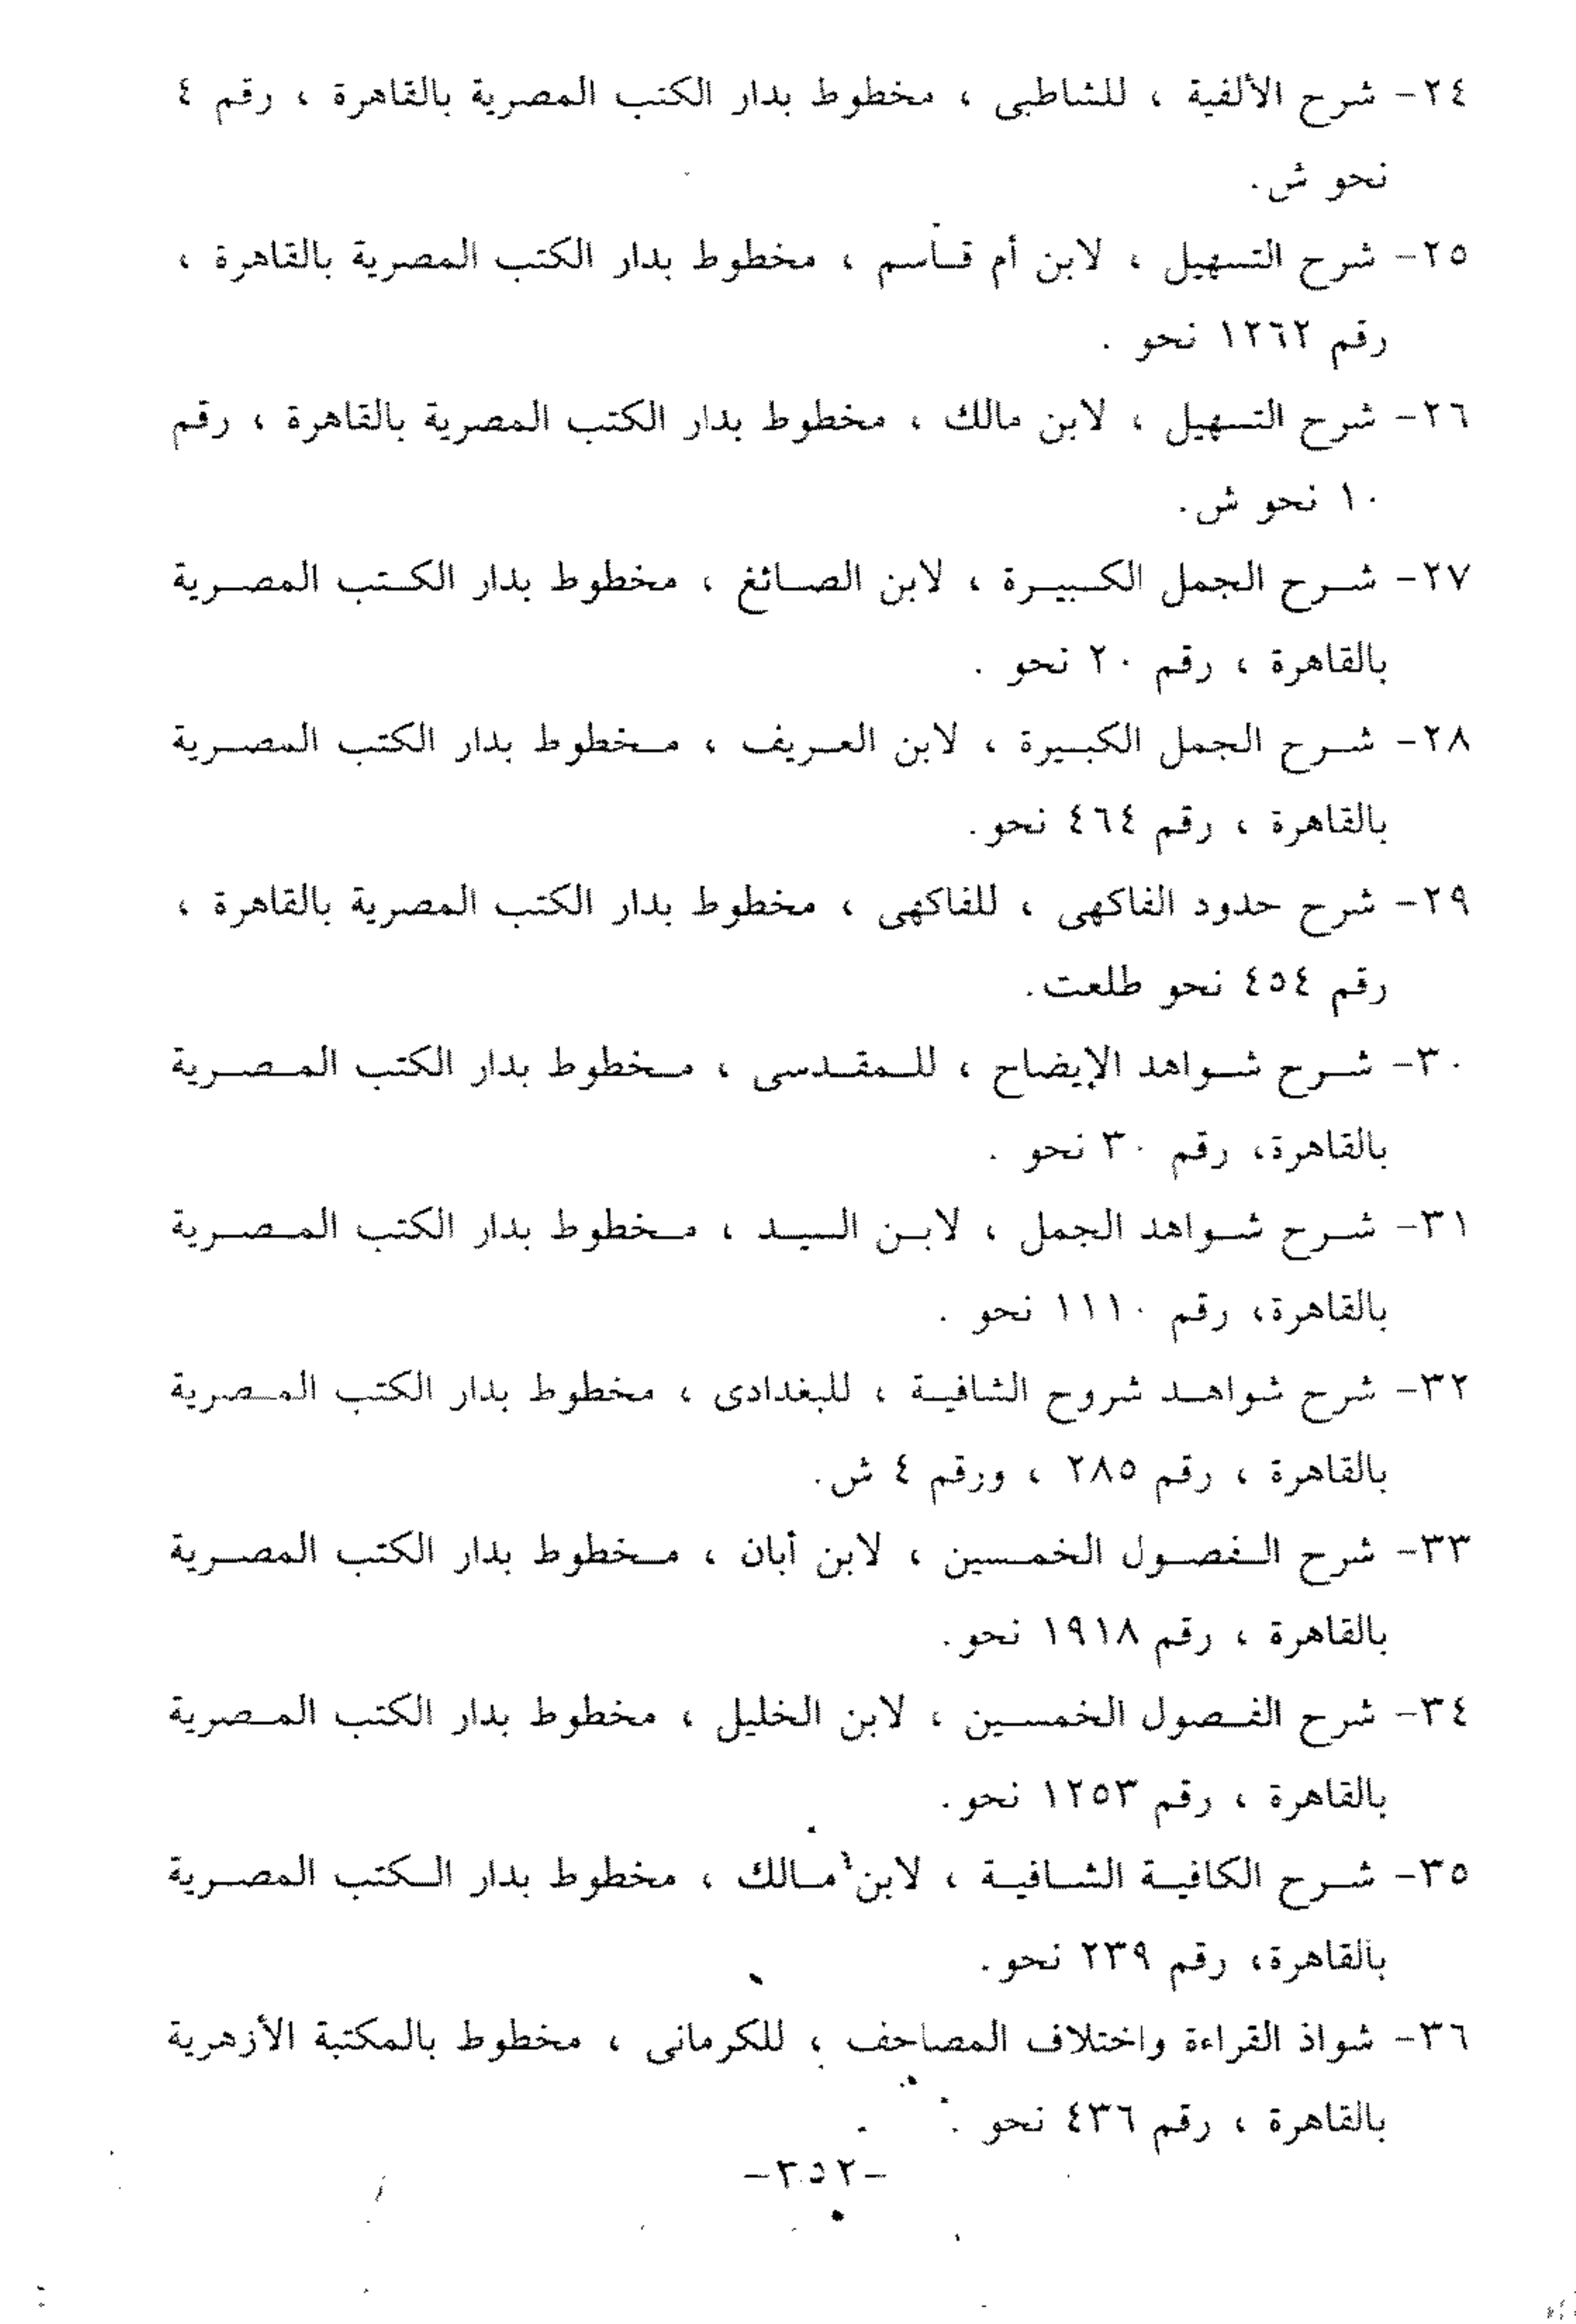 ٢٤- شرح الألفية ، للشاطبى ، مخطوط بدار الكتب المصرية بالقاهرة ، رقم ٤
نحو ش.
٢٥- شرح التسهيل ، لابن أم قاسم ، مخطوط بدار الكتب المصرية بالقاهرة ،
رقم ١٢٦٢ نحو .
٢٦- شرح التسهيل ، لابن مالك ، مخطوط بدار الكتب المصرية بالقاهرة ، رقم
١٠ نحو ش.
٢٧- شرح الجمل الكبيرة ، لابن الصائغ ، مخطوط بدار الكتب المصرية
بالقاهرة ، رقم ٢٠ نحو .
٢٨- شرح الجمل الكبيرة ، لابن العريف ، مخطوط بدار الكتب المصرية
بالقاهرة ، رقم ٤٦٤ نحو.
٢٩- شرح حدود الفاكهى ، للفاكهى ، مخطوط بدار الكتب المصرية بالقاهرة ،
رقم ٤٥٤ نحو طلعت.
٣٠- شرح شواهد الإيضاح ، للمقدسى ، مخطوط بدار الكتب المصرية
بالقاهرة، رقم ٣٠ نحو .
٣١- شرح شواهد الجمل ، لابن السيد ، مخطوط بدار الكتب المصرية
بالقاهرة، رقم ١١١٠ نحو .
٣٢- شرح شواهد شروح الشافية ، للبغدادى ، مخطوط بدار الكتب المصرية
بالقاهرة ، رقم ٢٨٥ ، ورقم ٤ ش.
٣٣- شرح الفصول الخمسين ، لابن أبان ، مخطوط بدار الكتب المصرية
بالقاهرة ، رقم ١٩١٨ نحو.
٣٤- شرح الفصول الخمسين ، لابن الخليل ، مخطوط بدار الكتب المصرية
بالقاهرة ، رقم ١٢٥٣ نحو.
٣٥- شرح الكافية الشافية ، لابن مالك ، مخطوط بدار الكتب المصرية
بالقاهرة، رقم ٢٣٩ نحو.
٣٦- شواذ القراءة واختلاف المصاحف ، للكرمانى ، مخطوط بالمكتبة الأزهرية
بالقاهرة ، رقم ٤٣٦ نحو .
-٣٥٢-